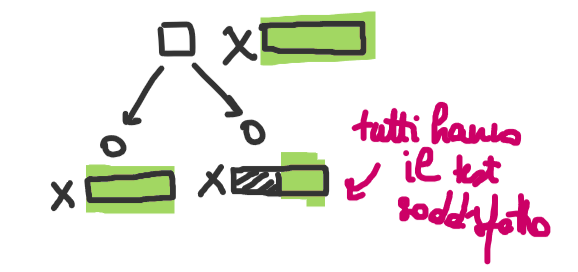 X
X
X
tutti hanno
il test
soddisfatto